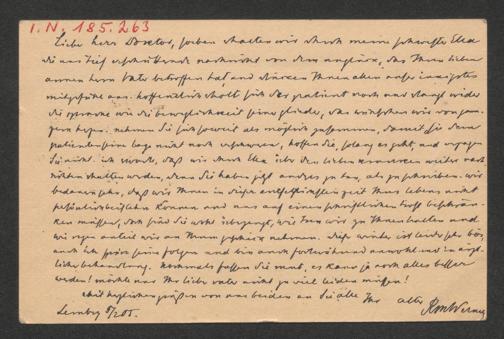 I.N. 185.263
Lieber Herr Doctor, soeben erhalten wir durch meine Schwester Elsa
die uns tief erschütternde Nachricht von dem Unglück, das Ihren lieben
armen Herrn Vater betroffen hat und drücken Ihnen allen unser innigstes
Mitgefühl aus. Hoffentlich erholt sich der Patient rasch und erlangt wieder
die Sprache wie die Beweglichkeit seiner Glieder, das wünschen wir von gan-
zem Herzen. Nehmen Sie sich soweit als möglich zusammen, damit Sie dem
Patienten seine Lage nicht noch erschweren, hoffen Sie, solang es geht, und verzagen
Sie nicht. Ich würde, daß wir durch Elsa über den lieben Kranken weiter Nach-
richten erhalten werden, denn Sie haben jetzt andres zu tun, als zu schreiben. Wir
bedauern sehr, daß wir Ihnen in dieser entsetzlichsten Zeit Ihres Lebens nicht
persönlich beistehen können und uns auf einen schriftlichen Trost beschrän-
ken müssen, doch sind Sie wohl überzeugt, wie treu wir zu Ihnen halten und
wie regen Anteil wir an Ihrem Geschicke nehmen. Dieser Winter ist leider sehr bös,
auch ich spüre seine Folgen und bin auch fortwährend unwohl und in ärzt-
licher Behandlung. Nochmals fassen Sie Mut, es kann ja noch alles besser
werden! Möchte nur Ihr lieber Vater nicht zu viel leiden müssen!
Mit herzlichen Grüßen von uns beiden an Sie alle Ihr alter
Lemberg RMWerner